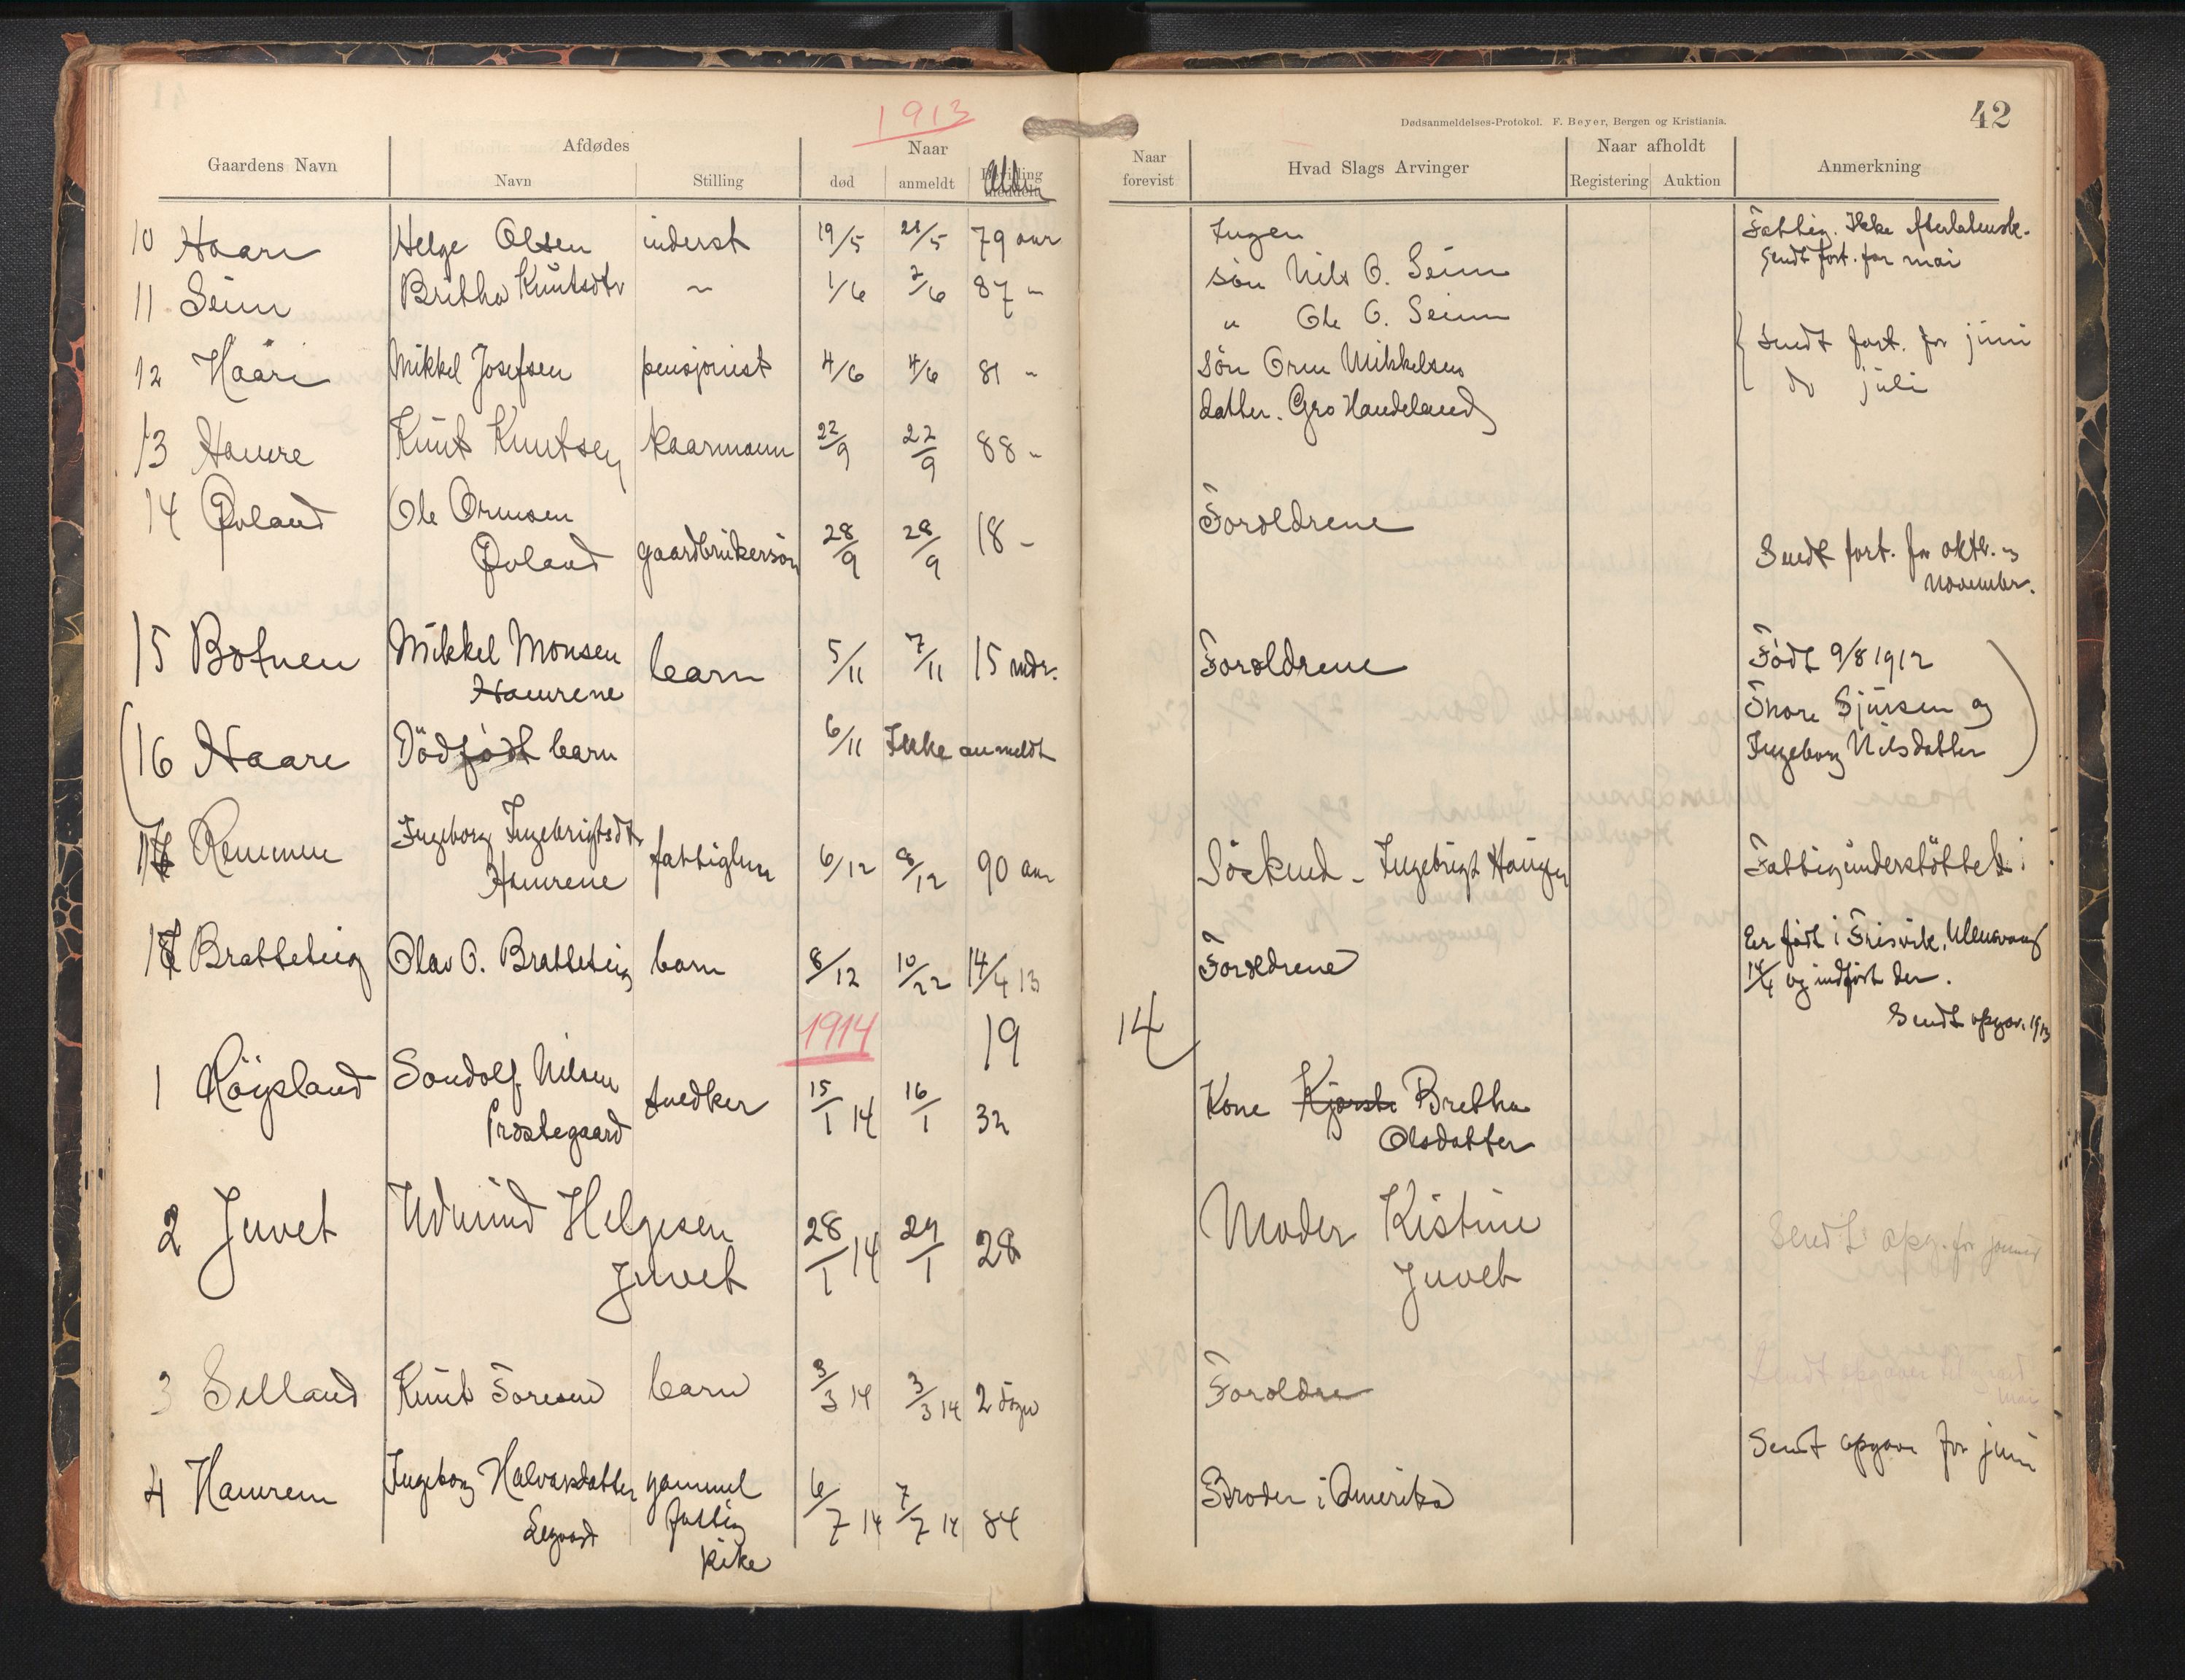 1913
Dødsanmeldelses-Protokol. F. Beyer, Bergen og Kristiania.
42
Gaardens Navn
Afdødes
Navn
Stilling
Naar
død
anmeldt
Bevilling meddelt
Alder
Naar forevist
Hvad Slags Arvinger
Naar afholdt
Registering
Auktion
Anmerkning
10 Haare Helge Olsen inderst 19/5 21/5 79 aar Ingen Fattig. Ikke
Sendt fort. for mai
11 Seim Britha Knutsdtr ~ 1/6 2/6 87 " søn Nils O. Seim
" Ole O. Seim
Sendt fort. for juni
12 Haare Mikkel Josefsen pensjonist 4/6 4/6 81 " Søn Orm Mikkelsen
do juli
datter. Gro Handeland
13 Haure Knut Knutsen kaarmann 22/9 22/9 88 "
14 Øvland Ole Ormsen
Øvland gaardbrukersøn 28/9 28/9 18 " Foreldrene
Sendt fort. for oktb. og
november.
15 Botnen Mikkel Monsen
Haurene barn 5/11 7/11 15 mdr. Foreldrene Født 9/8 1912
16 Haare Dødfødt barn 6/11 Ikke anmeldt Thore Sjursen og
Ingeborg Nilsdatter
17 Remmen Ingeborg Ingebrigtsdtr
Haurene 6/12 8/12 90 aar Søskend - Ingebrigt Haugen Fattigunderstøttet
18 Bratteteig Olav O. Bratteteig barn 8/12 10/22 14/4 13 Foreldrene Er født i Frisvik, Ullensvang
14/4 og indført der.
Sendt opgav. 1913
1914 19 14
1 Røysland Sondolf Nilsen
Prestegaard snedker 15/1 14 16/1 32 Kone Kjersti Bretha
Olsdatter
2 Juvet Udmund Helgesen
Juvet 28/1 14 29/1 28 Moder Kistine
Juvet
Sendt opg. for januar
3 Selland Knut Toresen barn 3/3 14 3/3 14 2 døgn Foreldre
Sendt opgaver
mai
Sendt opgave for juni
4 Haurem Ingeborg Halvarsdatter gammel
fattig
pike 6/7 14 7/7 14 84 Broder i Amerika